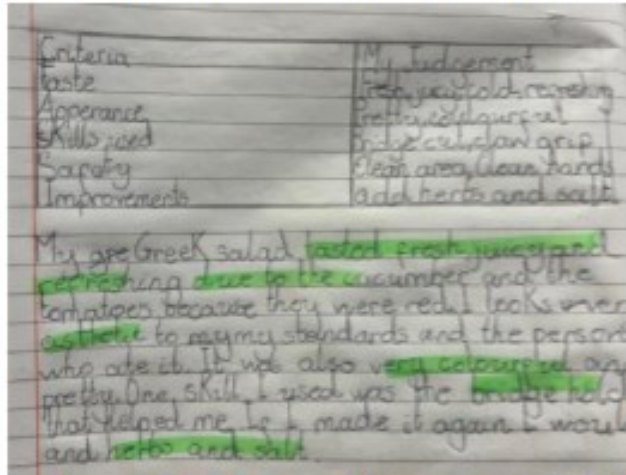 Criteria My Judgement
taste Fresh, juicy, cold, refreshing
Apperance Pretty, colourful
skills used Bridge cut, claw grip
Safety Clean area, Clean hands
Improvements add herbs and salt
My Greek salad tasted fresh juicey and
refreshing due to the cucumber and the
tomatoes because they were red. I looks
to my my standards and the person
who ate it. It was also very colourful and
pretty. One skill I used was the bridge hold
that helped me. If I made it again I woul
and herbs and salt.